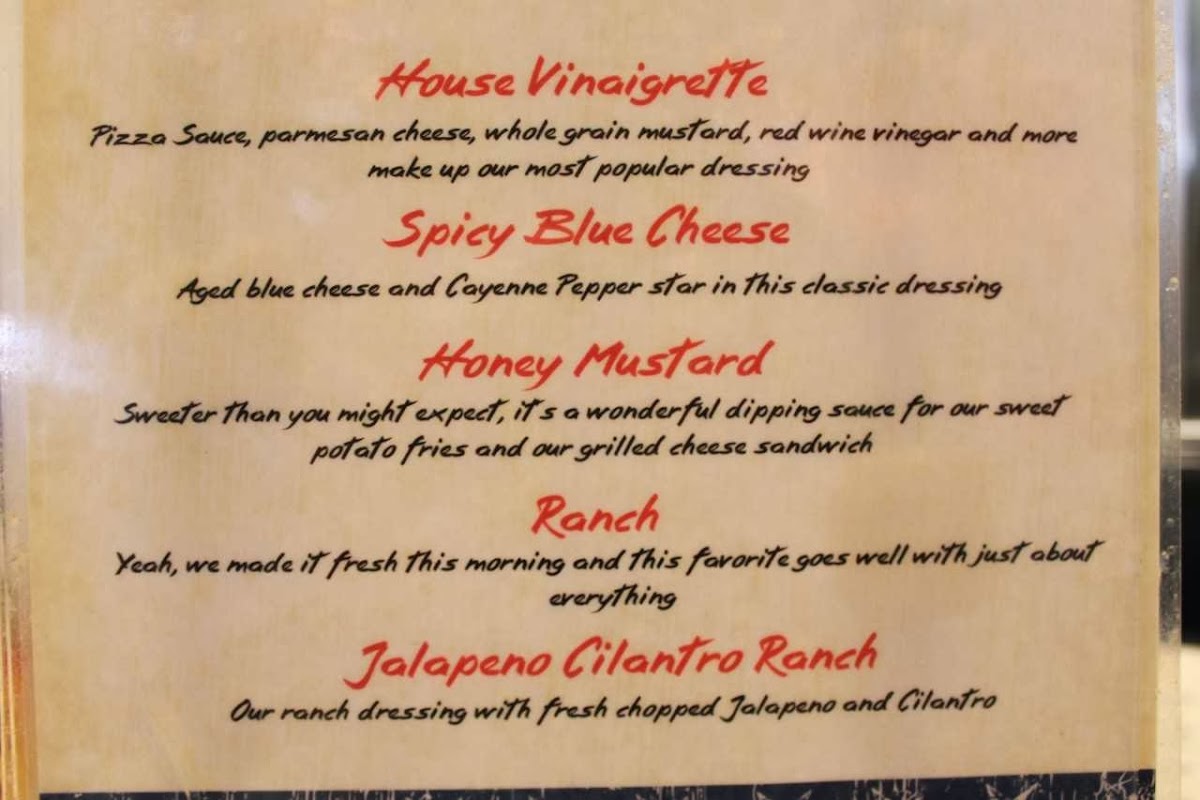 House Vinaigrette
Pizza Sauce, parmesan cheese, whole grain mustard, red wine vinegar and more
make up our most popular dressing
Spicy Blue Cheese
Aged blue cheese and Cayenne Pepper star in this classic dressing
Honey Mustard
Sweeter than you might expect, it's a wonderful dipping sauce for our sweet
potato fries and our grilled cheese sandwich
Ranch
Yeah, we made it fresh this morning and this favorite goes well with just about
everything
Jalapeno Cilantro Ranch
Our ranch dressing with fresh chopped Jalapeno and Cilantro